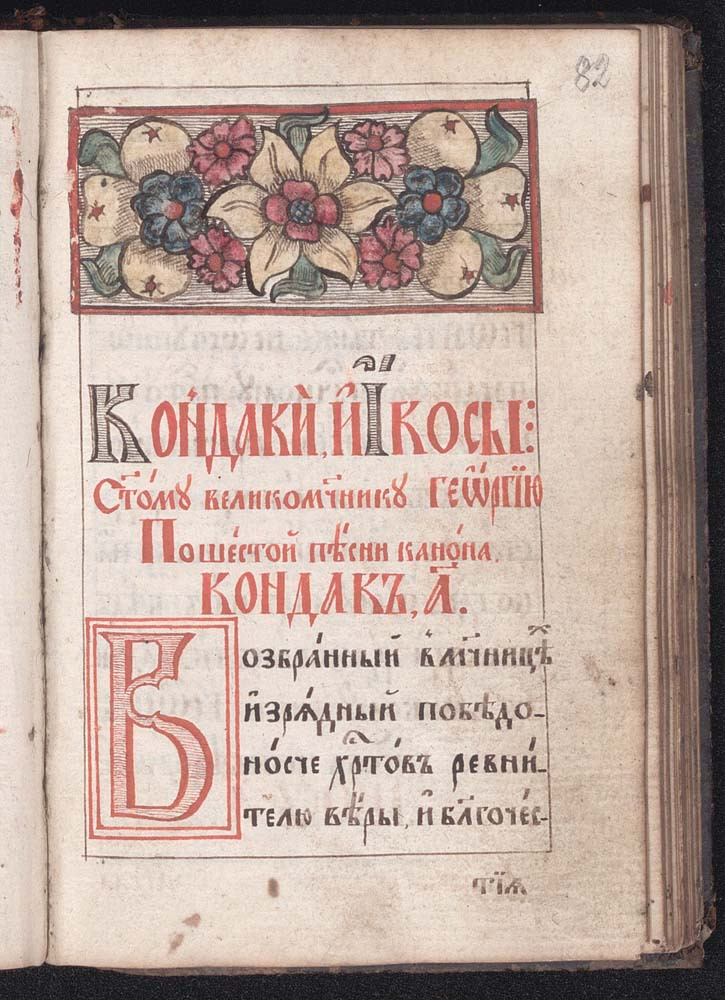 82
Кондаки́, и҆ І҆косы:
Ст҃о́му великомч҃нику Геѡ́ргїю
Поше́стой пѣ́сни кано́на.
КОНДАКЪ, А҃.
Возбра́нный в мч҃ницѣ
и҆зрѧ́дный побѣдо-
но́сче хрⷭ҇то́въ ревни́-
телю вѣ́ры, и҆ бл҃гоче́с-
тїѧ